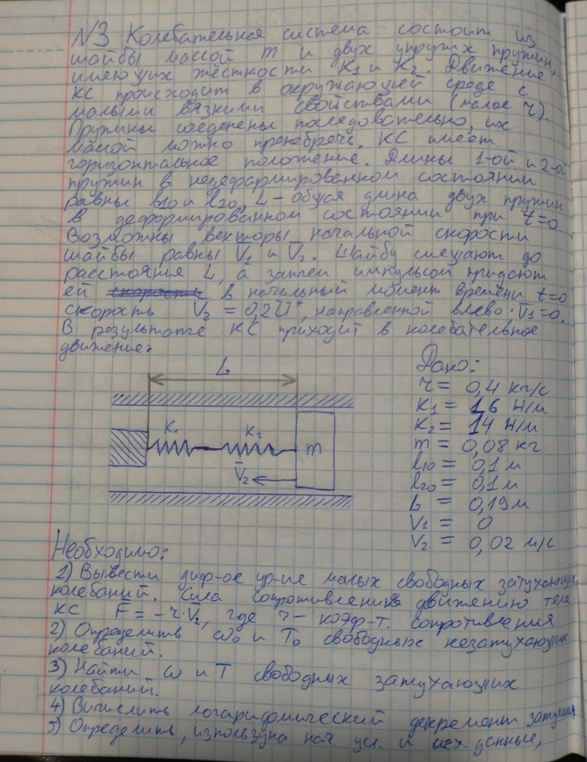 N3 Колебательная система состоит из
шайбы массой m и двух упругих пружин,
имеющих жёсткости K1 и K2. Движение
КС происходит в окружающей среде с
малыми вязкими свойствами (малое r).
Пружины соеденены последовательно, их
массой можно пренебречь. КС имеет
горизонтальное положение. Длины 1-ой и 2-ой
пружин в недеформированном состоянии
равны l10 и l20, L - общая длина двух пружин
в деформированном состоянии при t=0
Возможны векторы начальной скорости
шайбы равны V1 и V2. Шайбу смещают до
расстояния L, а затем импульсом придают
ей скорость в начальный момент времени t=0
скорость V2 = 0,2U*, направленной влево. V1=0.
В результате КС приходит в колебательное
движение.
L
K1
K2
m
V2
Дано:
r = 0,4 кг/с
K1 = 16 Н/м
K2 = 14 Н/м
m = 0,08 кг
l10 = 0,1 м
l20 = 0,1 м
L = 0,19 м
V1 = 0
V2 = 0,02 м/с
Необходимо:
1) Вывести диф-ое ур-ие малых свободных затухающих
колебаний. Сила сопротивления движению тела
КС F = -r·V, где r - коэф-т. сопротивления
2) Определить ω0 и T0 свободных незатухающих
колебаний.
3) Найти ω и T свободных затухающих
колебаний.
4) Вычислить логарифмический декремент затухания
5) Определить, используя нач. ус. и данные,